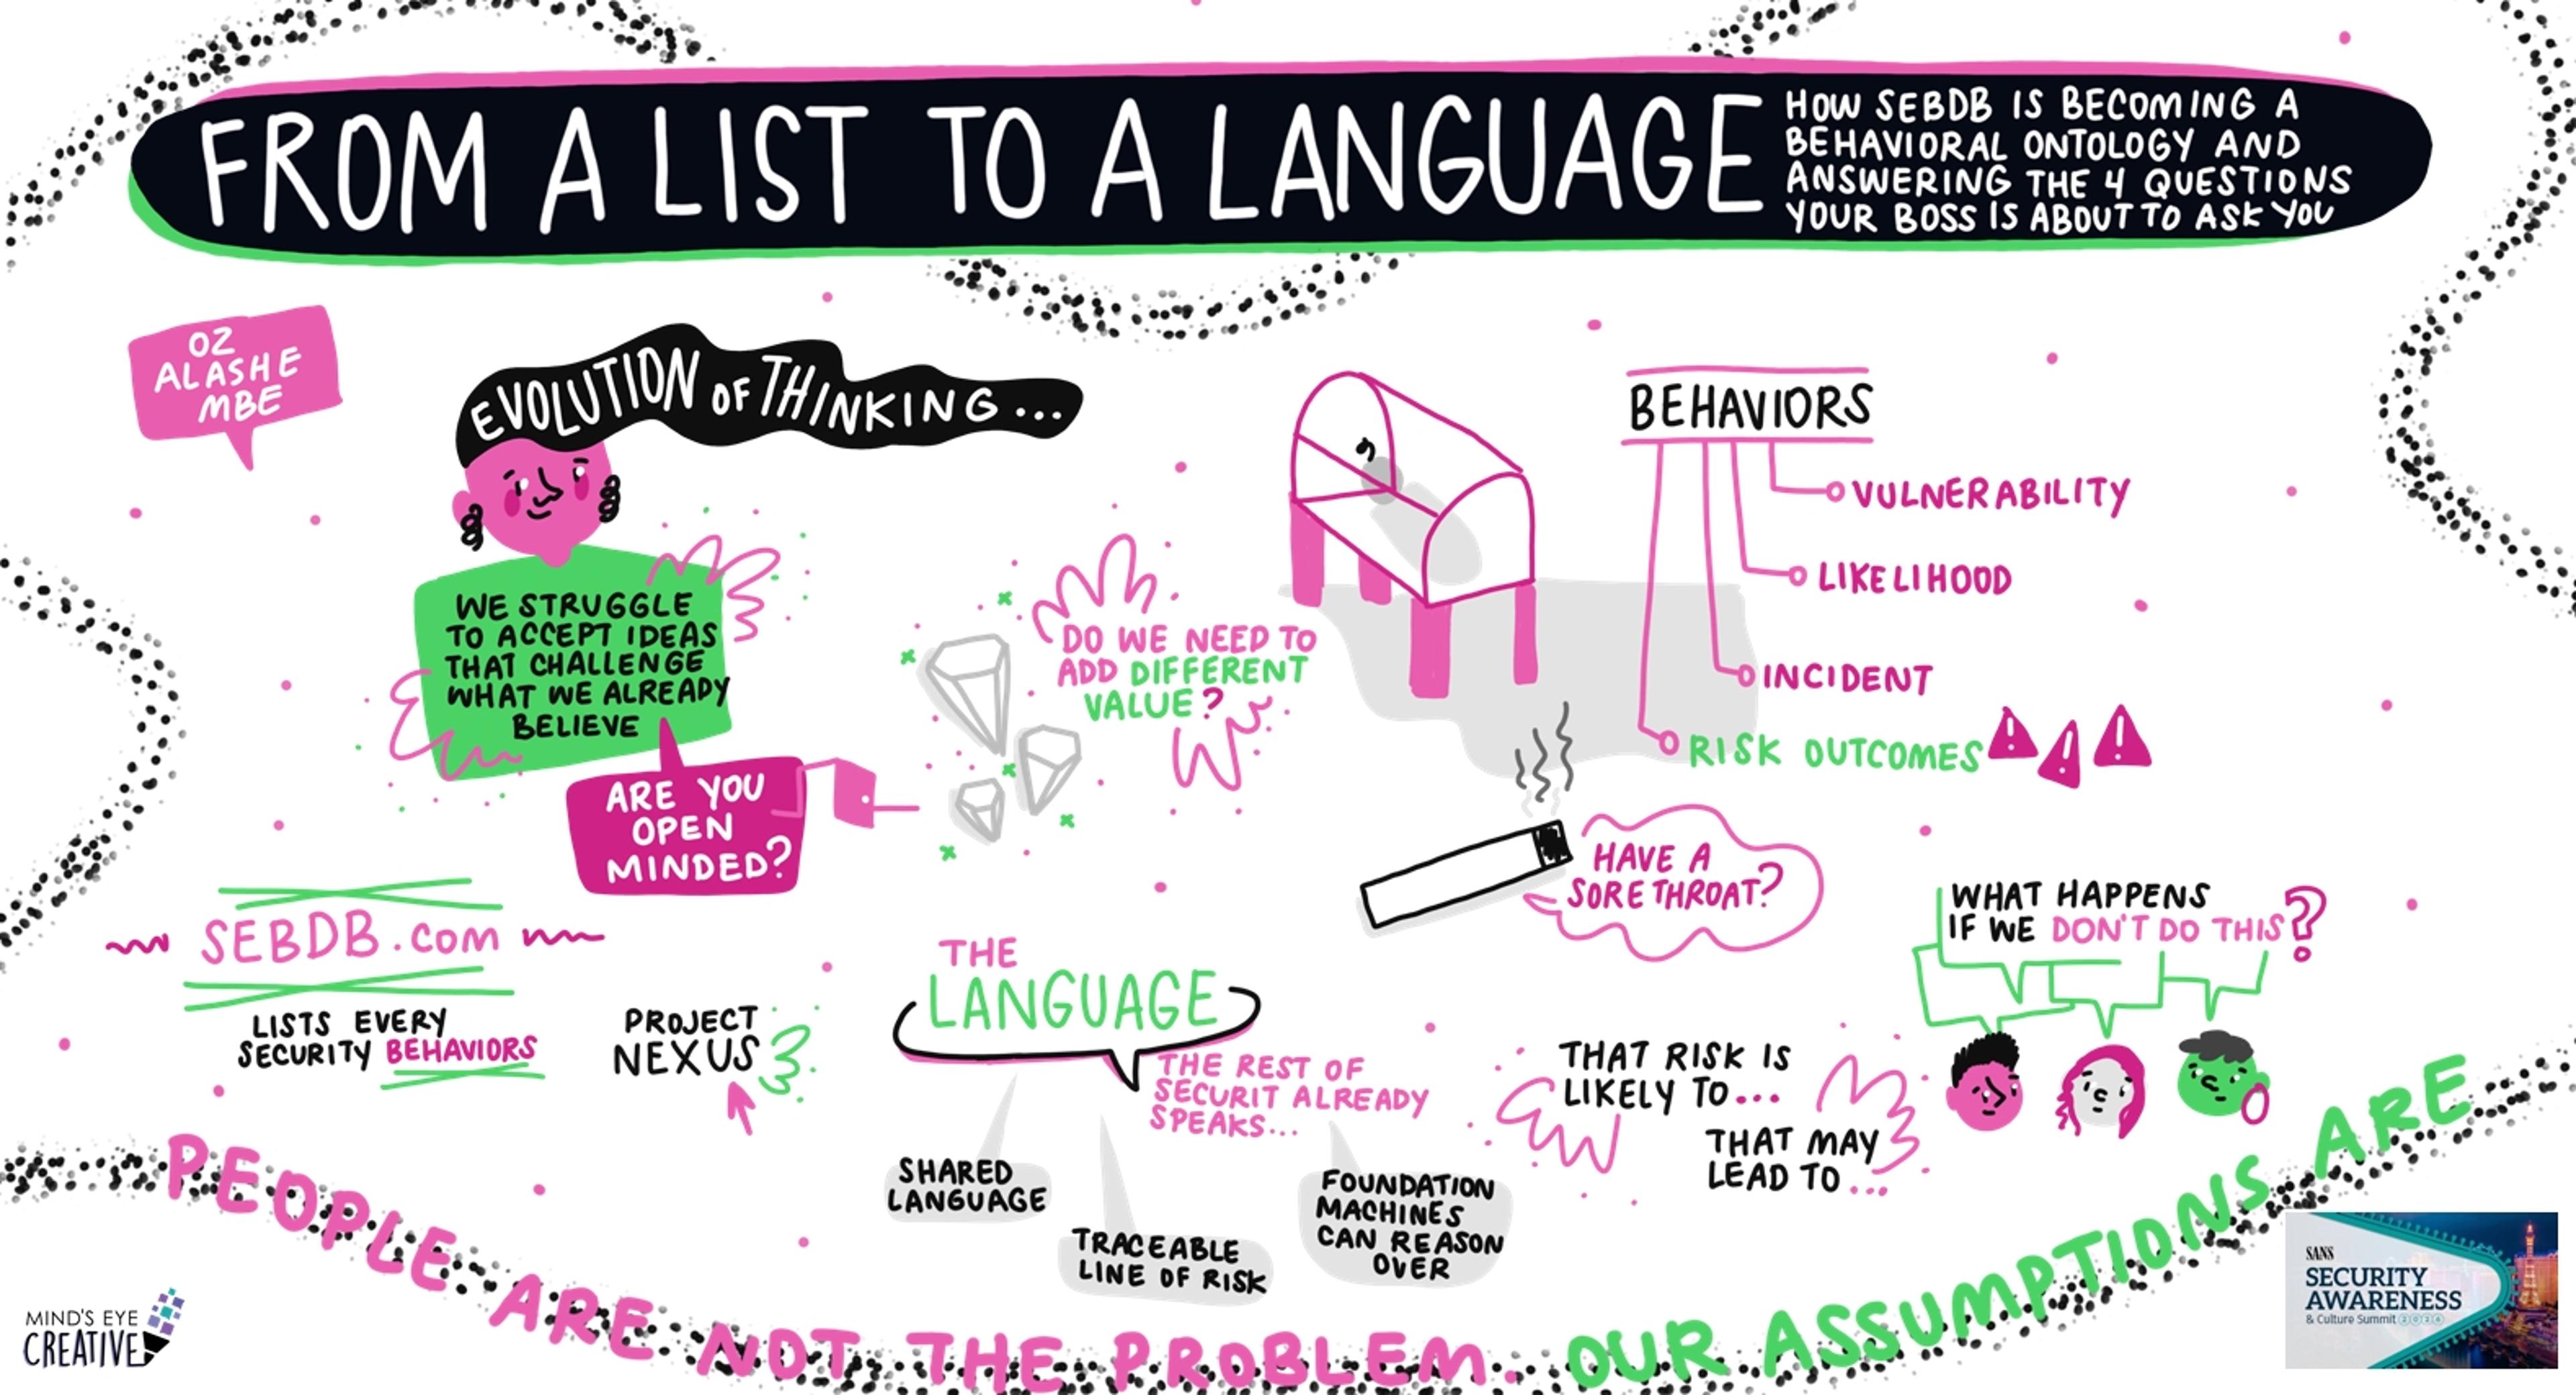 FROM A LIST TO A LANGUAGE
HOW SEBDB IS BECOMING A
BEHAVIORAL ONTOLOGY AND
ANSWERING THE 4 QUESTIONS
YOUR BOSS IS ABOUT TO ASK YOU
OZ
ALASHE
MBE
EVOLUTION OF THINKING...
WE STRUGGLE
TO ACCEPT IDEAS
THAT CHALLENGE
WHAT WE ALREADY
BELIEVE
ARE YOU
OPEN
MINDED?
DO WE NEED TO
ADD DIFFERENT
VALUE?
BEHAVIORS
VULNERABILITY
LIKELIHOOD
INCIDENT
RISK OUTCOMES
HAVE A
SORE THROAT?
SEBDB.com
LISTS EVERY
SECURITY BEHAVIORS
PROJECT
NEXUS
THE
LANGUAGE
THE REST OF
SECURIT ALREADY
SPEAKS...
SHARED
LANGUAGE
TRACEABLE
LINE OF RISK
FOUNDATION
MACHINES
CAN REASON
OVER
THAT RISK IS
LIKELY TO...
THAT MAY
LEAD TO...
WHAT HAPPENS
IF WE DON'T DO THIS?
PEOPLE ARE NOT THE PROBLEM. OUR ASSUMPTIONS ARE
MIND'S EYE
CREATIVE
SANS
SECURITY
AWARENESS
& Culture Summit